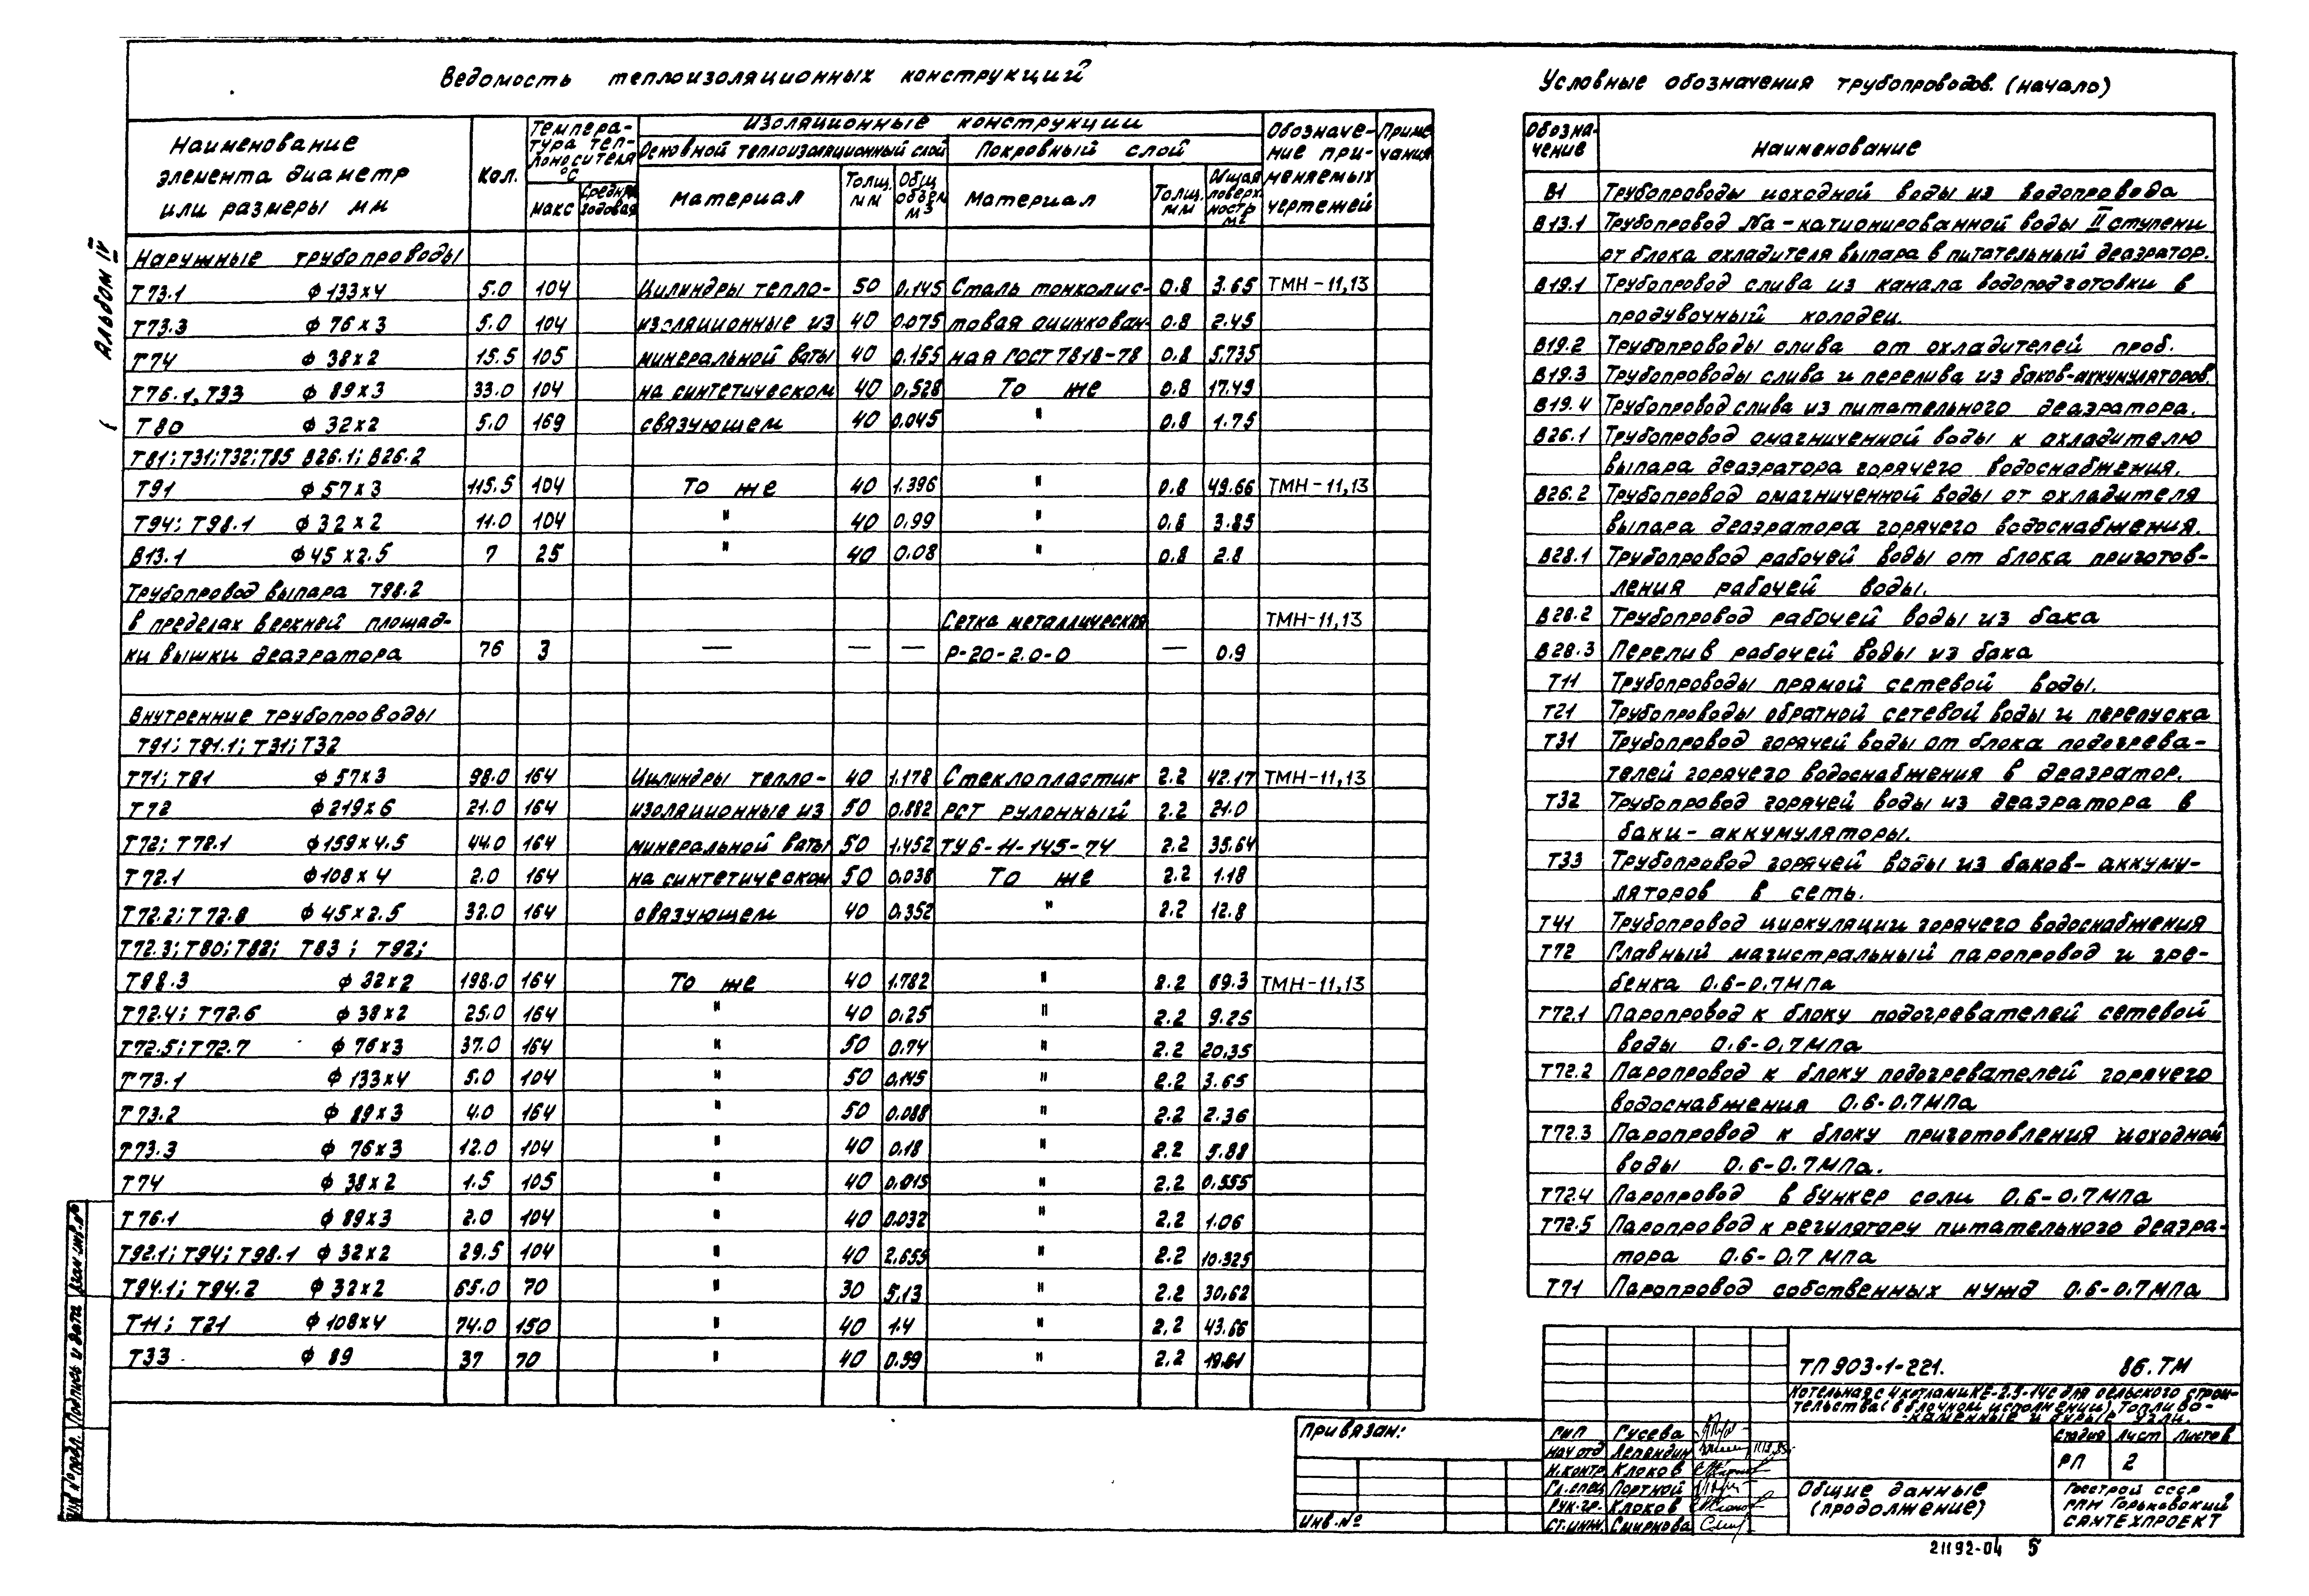 Ведомость теплоизоляционных конструкций
Наименование элемента диаметр или размеры мм | Кол. | Температура теплоносителя °С | Изоляционные конструкции | Обозначение применяемых чертежей | Примечания
Основной теплоизоляционный слой | Покровный слой
макс | Среднегодовая | Материал | Толщ. мм | Общ. объем м3 | Материал | Толщ. мм | Общая поверхность м2
Наружные трубопроводы
Т73.1 ф133х4 5.0 104 Цилиндры тепло- 50 0.145 Сталь тонколис- 0.8 3.65 ТМН-11,13
Т73.3 ф 76х3 5.0 104 изоляционные из 40 0.075 товая оцинкован- 0.8 2.45
Т74 ф 38х2 15.5 105 минеральной ваты 40 0.155 ная ГОСТ 7818-78 0.8 5.735
Т76.1, Т33 ф 89х3 33.0 104 на синтетическом 40 0.528 То же 0.8 17.49
Т80 ф 32х2 5.0 169 связующем 40 0.045 " 0.8 1.75
Т81; Т31; Т32; Т85 В26.1; В26.2
Т91 ф 57х3 115.5 104 То же 40 1.396 " 0.8 49.66 ТМН-11,13
Т94; Т98.1 ф 32х2 11.0 104 " 40 0.99 " 0.8 3.85
В13.1 ф45х2.5 7 25 " 40 0.08 " 0.8 2.8
Трубопровод выпара Т98.2
в пределах верхней площад- Сетка металлическая ТМН-11,13
ки вышки деаэратора 76 3 — — — Р-20-2.0-0 — 0.9
Внутренние трубопроводы
Т91; Т91.1; Т31; Т32
Т71; Т81 ф 57х3 98.0 164 Цилиндры тепло- 40 1.178 Стеклопластик 2.2 42.17 ТМН-11,13
Т72 ф219х6 21.0 164 изоляционные из 50 0.882 РСТ рулонный 2.2 21.0
Т72; Т72.1 ф159х4.5 44.0 164 минеральной ваты 50 1.452 ТУ6-11-145-74 2.2 35.64
Т72.1 ф108х4 2.0 164 на синтетическом 50 0.038 То же 2.2 1.18
Т72.2; Т72.8 ф 45х2.5 32.0 164 связующем 40 0.352 " 2.2 12.8
Т72.3; Т80; Т82; Т83; Т92;
Т98.3 ф 32х2 198.0 164 То же 40 1.782 " 2.2 69.3 ТМН-11,13
Т72.4; Т72.6 ф 38х2 25.0 164 " 40 0.25 " 2.2 9.25
Т72.5; Т72.7 ф 76х3 37.0 164 " 50 0.74 " 2.2 20.35
Т73.1 ф 133х4 5.0 104 " 50 0.145 " 2.2 3.65
Т73.2 ф 89х3 4.0 164 " 50 0.088 " 2.2 2.36
Т73.3 ф 76х3 12.0 104 " 40 0.18 " 2.2 5.88
Т74 ф 38х2 1.5 105 " 40 0.015 " 2.2 0.555
Т76.1 ф 89х3 2.0 104 " 40 0.032 " 2.2 1.06
Т92.1; Т94; Т98.1 ф 32х2 29.5 104 " 40 2.655 " 2.2 10.325
Т94.1; Т94.2 ф 32х2 65.0 70 " 30 5.13 " 2.2 30.62
Т11; Т21 ф 108х4 74.0 150 " 40 1.4 " 2.2 43.66
Т33 ф 89 37 70 " 40 0.59 " 2.2 19.61
Условные обозначения трубопроводов. (начало)
Обозначение | Наименование
В1 Трубопроводы исходной воды из водопровода
В13.1 Трубопровод Na-катионированной воды II ступени
от блока охладителя выпара в питательный деаэратор.
В19.1 Трубопровод слива из канала водоподготовки в
продувочный колодец.
В19.2 Трубопроводы слива от охладителей проб.
В19.3 Трубопроводы слива и перелива из баков-аккумуляторов.
В19.4 Трубопровод слива из питательного деаэратора.
В26.1 Трубопровод омагниченной воды к охладителю
выпара деаэратора горячего водоснабжения.
В26.2 Трубопровод омагниченной воды от охладителя
выпара деаэратора горячего водоснабжения.
В28.1 Трубопровод рабочей воды от блока приготов-
ления рабочей воды.
В28.2 Трубопровод рабочей воды из бака
В28.3 Перелив рабочей воды из бака
Т11 Трубопроводы прямой сетевой воды.
Т21 Трубопроводы обратной сетевой воды и перепуска
Т31 Трубопровод горячей воды от блока подогрева-
телей горячего водоснабжения в деаэратор.
Т32 Трубопровод горячей воды из деаэратора в
баки-аккумуляторы.
Т33 Трубопровод горячей воды из баков-аккуму-
ляторов в сеть.
Т41 Трубопровод циркуляции горячего водоснабжения
Т72 Главный магистральный паропровод и гре-
бенка 0.6-0.7МПа
Т72.1 Паропровод к блоку подогревателей сетевой
воды 0.6-0.7МПа
Т72.2 Паропровод к блоку подогревателей горячего
водоснабжения 0.6-0.7МПа
Т72.3 Паропровод к блоку приготовления исходной
воды 0.6-0.7МПа.
Т72.4 Паропровод в бункер соли 0.6-0.7МПа
Т72.5 Паропровод к регулятору питательного деаэра-
тора 0.6-0.7МПа
Т71 Паропровод собственных нужд 0.6-0.7МПа
Альбом IV
Инв № подл. Подпись и дата Взам инв.№
Привязан:
Инв.№
ГИП Гусева
Нач отд Лепандин
Н.контр. Клоков
Гл.спец Портной
Рук.гр. Клоков
Ст.инж. Смирнова
ТП 903-1-221. 86.ТМ
Котельная с 4 котлами КЕ-2.5-14С для сельского строи-
тельства (в блочном исполнении). Топливо-
каменные и бурые угли.
Стадия Лист Листов
РП 2
Общие данные
(продолжение)
Госстрой СССР
ГПИ Горьковский
САНТЕХПРОЕКТ
21192-04 5